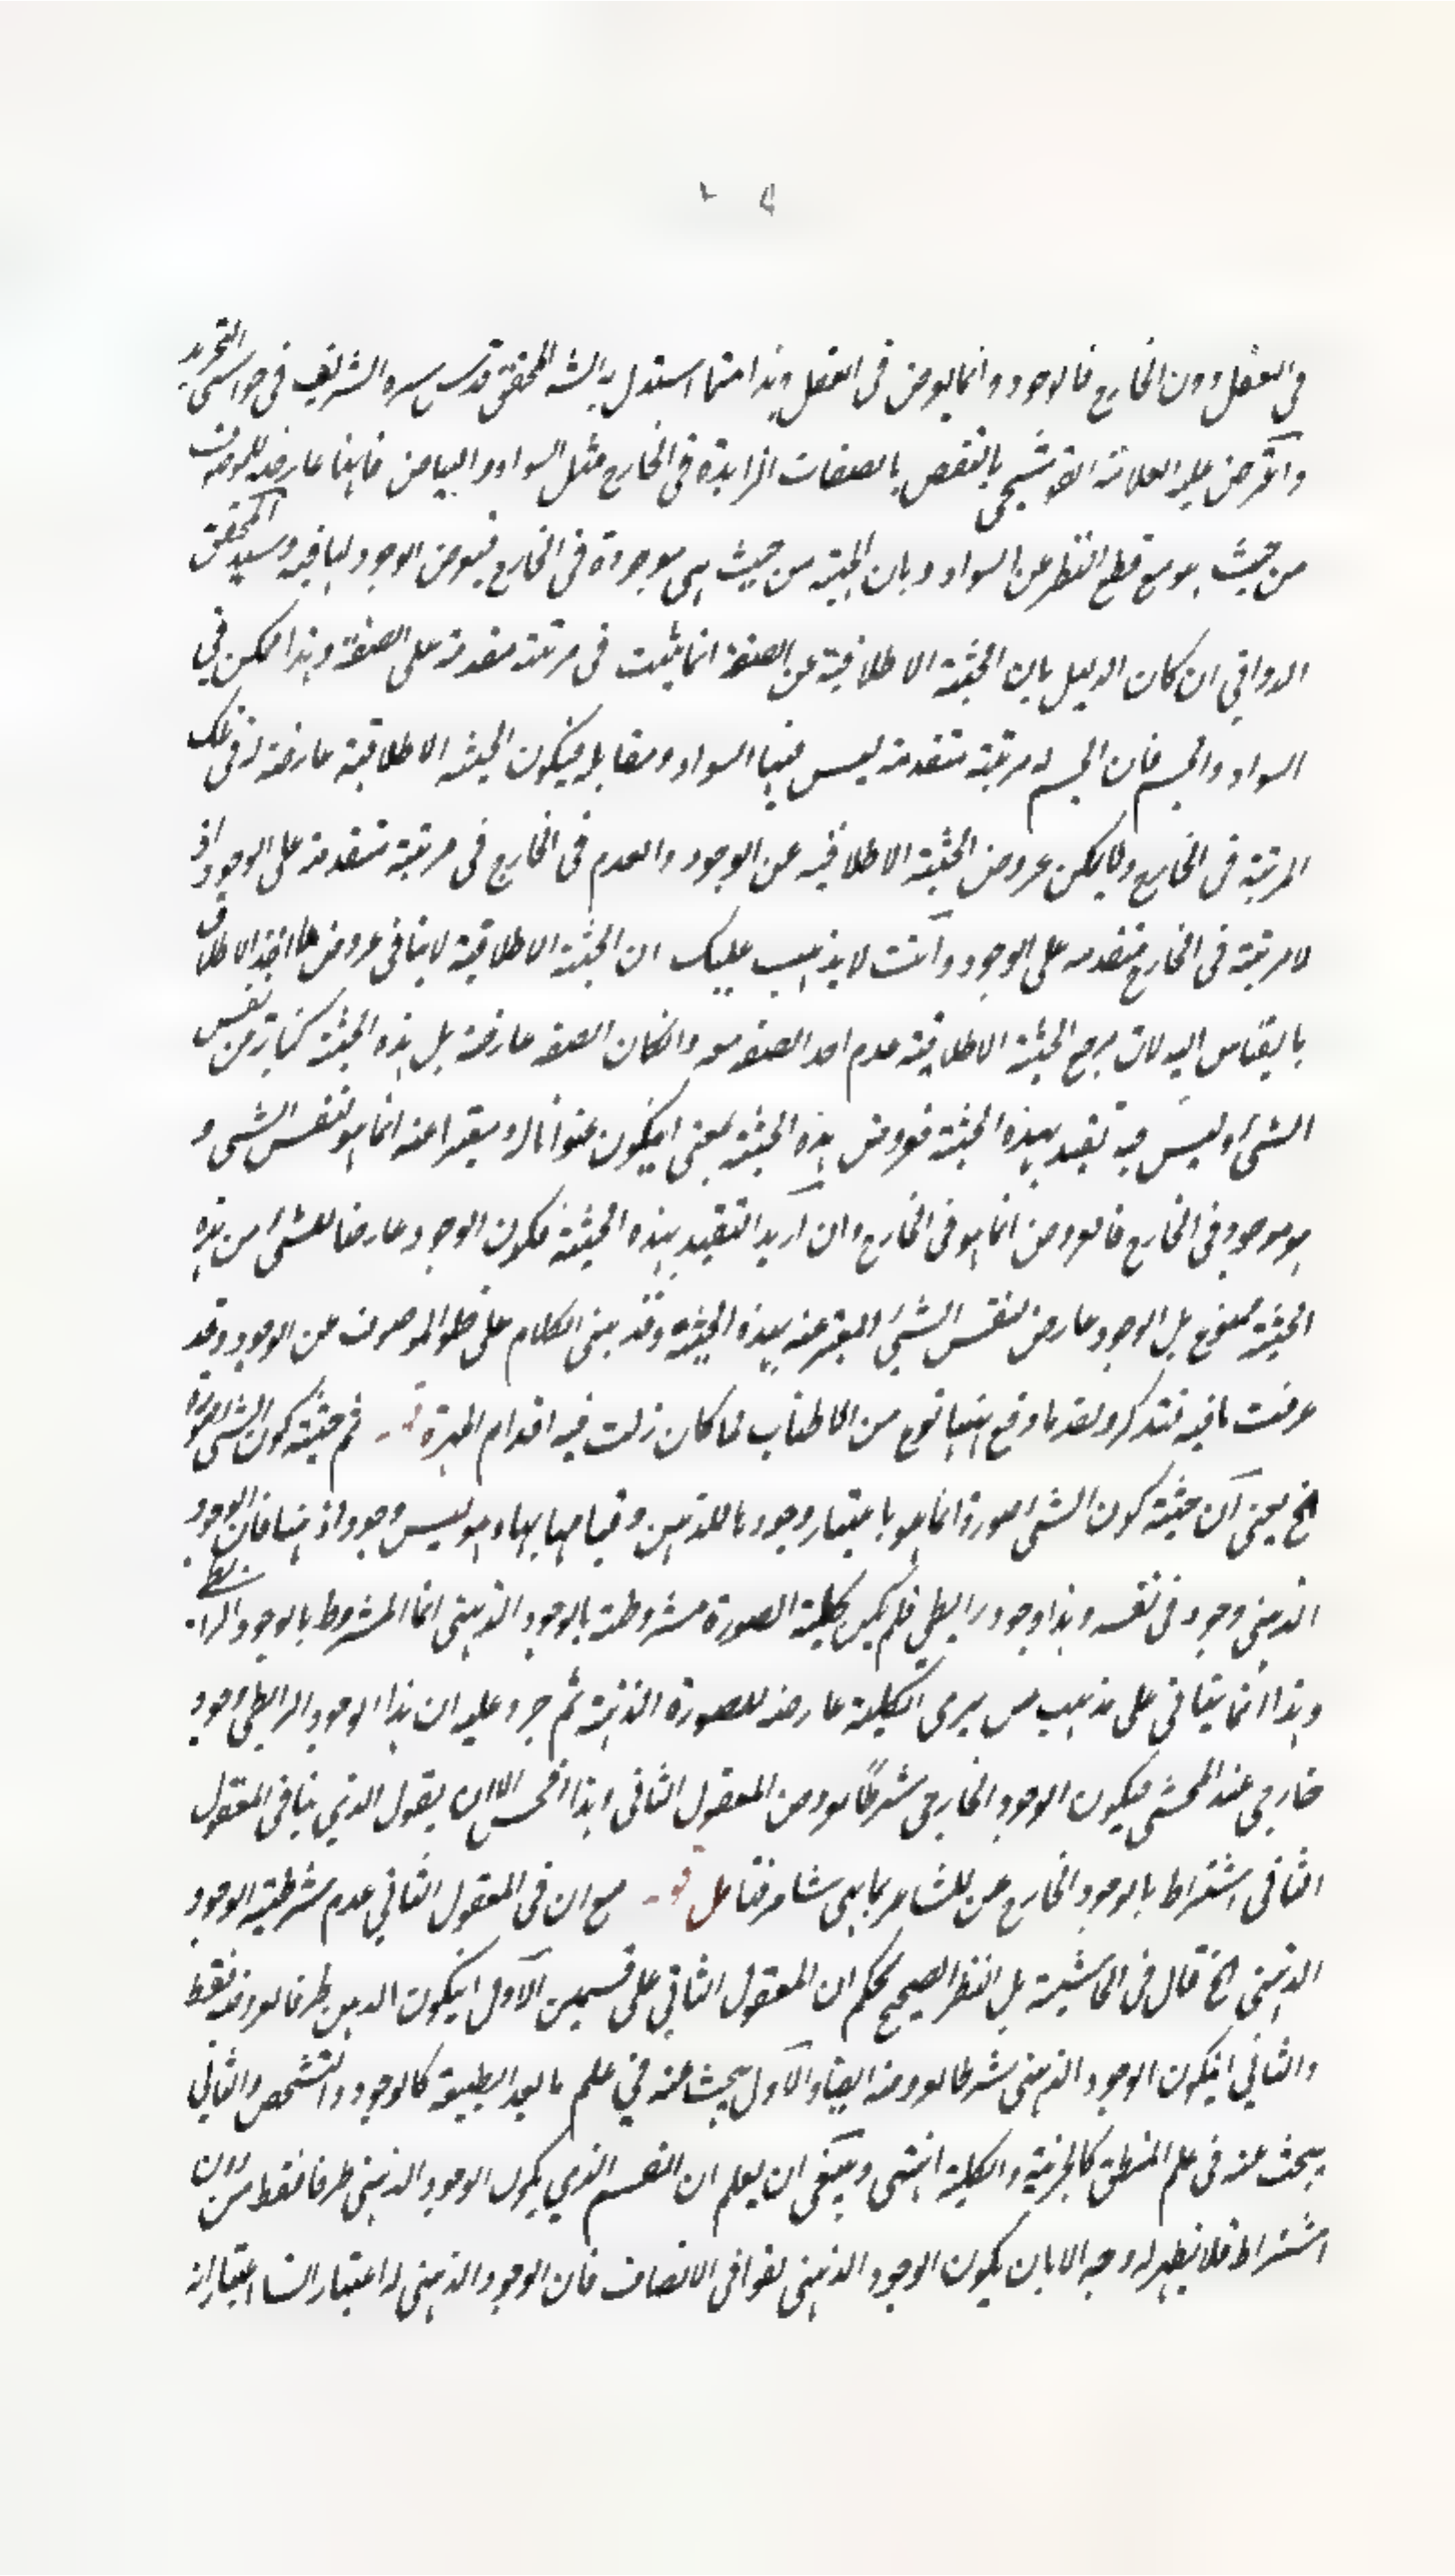 في العقل دون الخارج فالوجود وانما يعرض في العقل وهذا مما استدل به الشه المحقق قدس سره الشريف في حواشي التجريد
واعترض عليه العلامة القوشجي بالنقض بالصفات الزايدة في الخارج مثل السواد والبياض فانهما عارضه للموصوف
من حيث هو مع قطع النظر عن السواد وبان الحيثية من حيث هي موجودة في الخارج فيعرض الوجود لها فيه وسيد المحقق
الدواني ان كان الدليل بان الحيثية الاطلاقية عن الصفة انما يثبت في مرتبة متقدمة على الصفة وهذا ممكن في
السواد والجسم فان الجسم له مرتبة متقدمة ليس فيها السواد ومقابله فيكون الحيثية الاطلاقية عارضة له في تلك
المرتبة في الخارج ولا يمكن عروض الحيثية الاطلاقية عن الوجود والعدم في الخارج في مرتبة متقدمة على الوجود اذ
لا مرتبة في الخارج متقدمه على الوجود وأنت لا يذهب عليك ان الحيثية الاطلاقية لا ينافي عروض ما اخذ الاطلاق
بالقياس اليه لان مرجع الحيثية الاطلاقية عدم اخذ الصفه معه وان كان الصفه عارضة بل هذه الحيثية كناية عن نفس
الشيء وليس فيه تقييد بهذه الحيثية فعروض هذه الحيثية بمعنى ان يكون عنوانا له ومعبرا عنه انما هو لنفس الشيء و
هو موجود في الخارج فالعروض انما هو في الخارج وان أريد التقييد بهذه الحيثية فكون الوجود عارضا للشيء من هذه
الحيثية ممنوع بل الوجود عارض لنفس الشيء المعبر عنه بهذه الحيثية وقد بنى الكلام على خلو الموصوف عن الوجود وقد
عرفت ما فيه فتذكر ولقد ما وقع ههنا نوع من الاطناب لما كان زلت فيه اقدام المهرة قوله ثم حيثية كون الشيء صورة
الخ يعني أن حيثية كون الشيء صورة انما هو باعتبار وجودها للذهن وقيامها بها وهو ليس وجودا ذهنيا فان الوجود
الذهني وجود في نفسه وهذا وجود رابطي فلم يكن كلية الصورة مشروطة بالوجود الذهني انما المشروط بالوجود الرابطي
وهذا انما يتاتى على مذهب من يرى الكلية عارضه للصورة الذهنية ثم يرد عليه ان هذا الوجود الرابطي وجود
خارجي عند المحشي فيكون الوجود الخارجي شرطًا لعروض المعقول الثاني وهذا افحش الا ان يقول الذي ينافي المعقول
الثاني اشتراط بالوجود الخارجي للمشاعر بما هي مشاعر فتامل قوله مع ان في المعقول الثاني عدم شرطية الوجود
الذهني الخ قال في الحاشية بل النظر الصحيح يحكم ان المعقول الثاني على قسمين الأول ان يكون الذهن ظرفا لعروضه فقط
والثاني ان يكون الوجود الذهني شرطا لعروضه ايضا والأول يبحث عنه في علم ما بعد الطبيعة كالوجود والتشخص والثاني
يبحث عنه في علم المنطق كالجزئية والكلية انتهى وينبغي ان يعلم ان القسم الذي يكون الوجود الذهني ظرفا فقط من دون
اشتراط فلا يظهر له وجه الا بان يكون الوجود الذهني لغوا في الاتصاف فان الوجود الذهني له اعتباران اعتبار انه